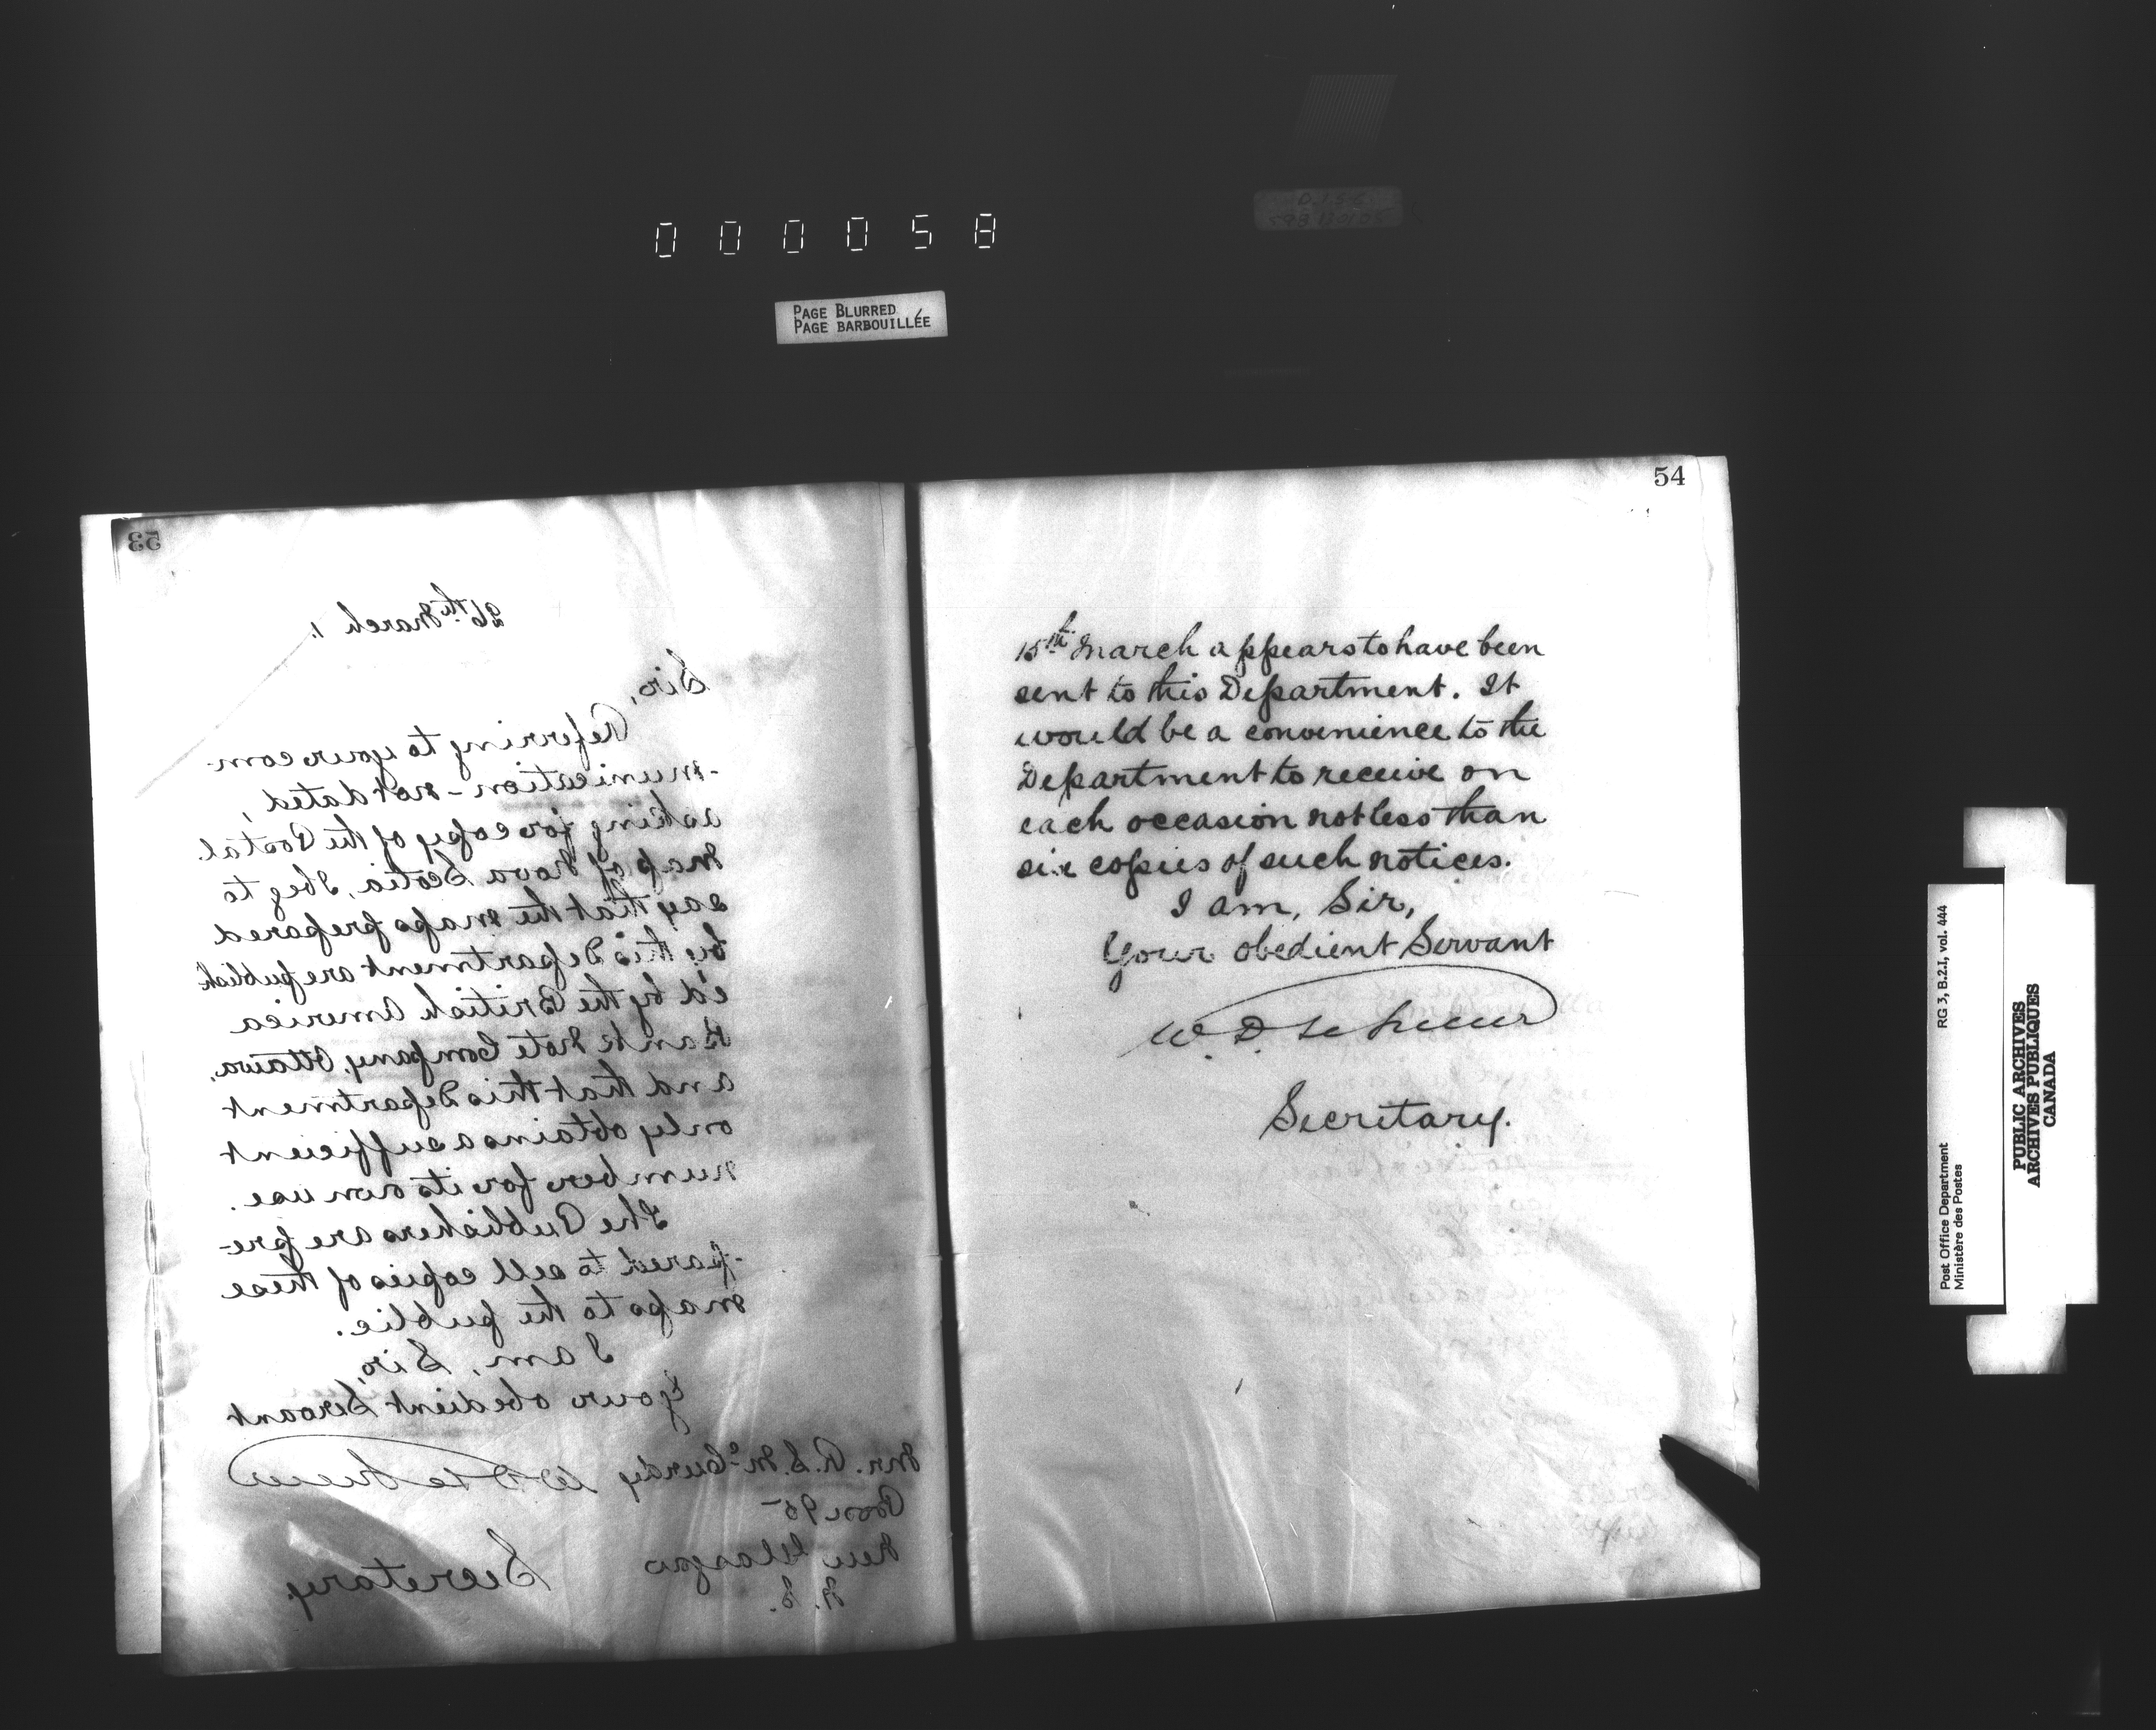 000058
PAGE BLURRED
PAGE BARBOUILLÉE
53
26th March 1.
Sir,
Referring to your com-
-munication - not dated,
asking for copy of the Postal
Map of Nova Scotia, I beg to
say that the maps prepared
by this Department are publish
e'd by the British America
Bank Note Company, Ottawa,
and that this Department
only obtains a sufficient
number for its own use.
The Publishers are pre-
-pared to sell copies of these
maps to the public.
I am, Sir,
Your obedient Servant
W D Le Sueur
Secretary.
Mr. A. S. McCurdy
Box 95
New Glasgow
N. S.
54
15th March appears to have been
sent to this Department. It
would be a convenience to the
Department to receive on
each occasion not less than
six copies of such notices.
I am, Sir,
Your obedient Servant
W. D. Le Sueur
Secretary.
Post Office Department
Ministère des Postes
RG 3, B.2.I, vol. 444
PUBLIC ARCHIVES
ARCHIVES PUBLIQUES
CANADA